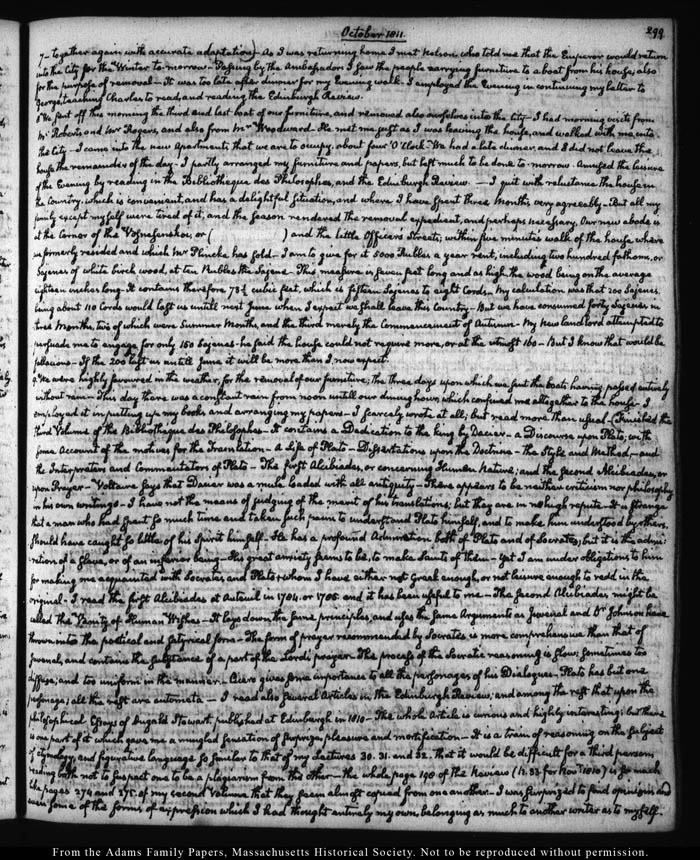 October 1811.
299
7— together again with accurate adaptation) As I was returning home I met Nelson, who told me that the Emperor would return
into the City for the Winter to-morrow— Passing by the Ambassador's I saw the people carrying furniture to a boat from his house, also
for the purpose of removal— It was too late after dinner for my Evening walk. I employed the Evening in continuing my letter to
George, teaching Charles to read, and reading the Edinburgh Review.
8 We sent off this morning the third and last boat of our furniture, and removed also ourselves into the City— I had morning visits from
Mr Roberts and Mr Rogers, and also from Mr Woodward. He met me just as I was leaving the house, and walked with me into
the City— I came into the new Apartments that we are to occupy, about four O'Clock. We had a late dinner, and I did not leave the
house the remainder of the day. I partly arranged my furniture and papers, but left much to be done to-morrow. Amused the leisure
of the Evening by reading in the Bibliotheque des Philosophes, and the Edinburgh Review. — I quit with reluctance the house in
the Country, which is convenient, and has a delightful situation, and where I have spent three Months very agreeably— But all my
family except myself were tired of it, and the Season rendered the removal expedient, and perhaps necessary. Our new abode is
at the Corner of the Voznesenskoi, or ( ) and the little Officer's Streets; within five minutes walk of the house where
we formerly resided and which Mr Plincke has sold— I am to give for it 5000 Rubles a year rent, including two hundred fathoms, or
Sazenes of white birch wood, at ten Rubles the Sazene— This measure is seven feet long and as high, the wood being on the average
eighteen inches long— It contains therefore 73½ cubic feet, which is fifteen Sazenes to eight Cords. My calculation was that 200 Sazenes
being about 110 Cords would last us until next June when I expect we shall leave this Country— But we have consumed forty Sazenes in
three Months, two of which were Summer Months, and the third merely the Commencement of Autumn— My new landlord attempted to
persuade me to engage for only 150 Sazenes— he said the house could not require more, or at the utmost 160— But I know that would be
fallacious— If the 200 last us until June it will be more than I now expect.
9. We were highly favoured in the weather, for the removal of our furniture; the three days upon which we sent the boats having passed entirely
without rain— This day there was a constant rain from noon until our dining hour, which confined me altogether to the house— I
employed it in putting up my books and arranging my papers— I scarcely wrote at all; but read more than usual— (Finished the
third Volume of the Bibliotheque des Philosophes— It contains a Dedication to the king by Dacier— a Discourse upon Plato, with
some Account of the motives for the Translation— A Life of Plato— Dissertations upon the Doctrine— the Style and Method,— and
the Interpreters and Commentators of Plato— The first Alcibiades, or concerning Human Nature; and the Second Alcibiades, or
upon Prayer— Voltaire says that Dacier was a mule loaded with all antiquity— There appears to be neither criticism nor philosophy
in his own writings— I have not the means of judging of the merit of his translations; but they are in no high repute— It is strange
that a man who had spent so much time and taken such pains to understand Plato himself, and to make him understood by others,
should have caught so little of his Spirit himself— He has a profound Admiration both of Plato and of Socrates; but it is the admi-
ration of a slave, or of an inferior being— His great anxiety seems to be, to make Saints of them— Yet I am under obligations to him
for making me acquainted with Socrates and Plato, whom I have either not Greek enough, or not leisure enough to read in the
original— I read the first Alcibiades at Auteuil in 1784. or 1785 and it has been useful to me— The second Alcibiades, might be
called the Vanity of Human Wishes— It lays down the same principles, and uses the same Arguments as Juvenal and Dr Johnson have
thrown into the poetical and satyrical form— The form of prayer recommended by Socrates is more comprehensive than that of
Juvenal, and contains the substance of a part of the Lord's prayer— The process of the Socratic reasoning is slow; sometimes too
diffuse, and too uniform in the manner— Cicero gives some importance to all the personages of his Dialogues— Plato has but one
personage; all the rest are automata— I read also several Articles in the Edinburgh Review, and among the rest that upon the
philosophical Essays of Dugald Stewart, published at Edinburgh in 1810— The whole Article is curious and highly interesting; but there
is one part of it which gave me a mingled sensation of surprize, pleasure and mortification— It is a train of reasoning on the subject
of etymology, and figurative language so similar to that of my Lectures 30. 31. and 32. that it would be difficult for a third person
reading both not to suspect one to be a plagiarism from the other— the whole page 190 of the Review (N. 33 for Novr 1810) is so much
like pages 274 and 275. of my second volume that they seem almost copied from one another— I was surprized to find opinions and
even some of the forms of expression which I had thought entirely my own, belonging as much to another writer as to myself.
From the Adams Family Papers, Massachusetts Historical Society. Not to be reproduced without permission.